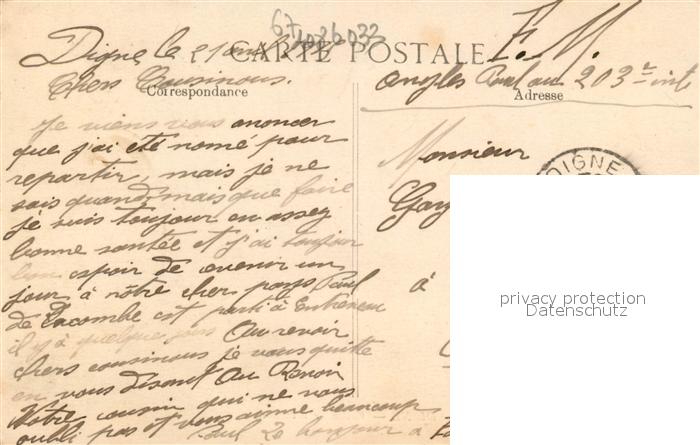 67
CARTE POSTALE
F. M.
Digne le 21
Chers Cousinous.
Correspondance
Angles Paul au 203e inf
Adresse
Je viens vous anoncer
que j'ai eté nomé pour
repartir, mais je ne
sais quand, mais que faire
je suis toujour en assez
bonne santée et j'ai toujour
bon espoir de avenir un
jour à nôtre cher pays Paul
de Lacombe est parti à
il y à quelques jours Au revoir
chers cousinous je vous quitte
en vous disant Au Revoir
Votre cousin qui ne vous
oubli pas et vous aime beaucoup
Paul le bonjour à
Monsieur
à
DIGNE
privacy protection
Datenschutz